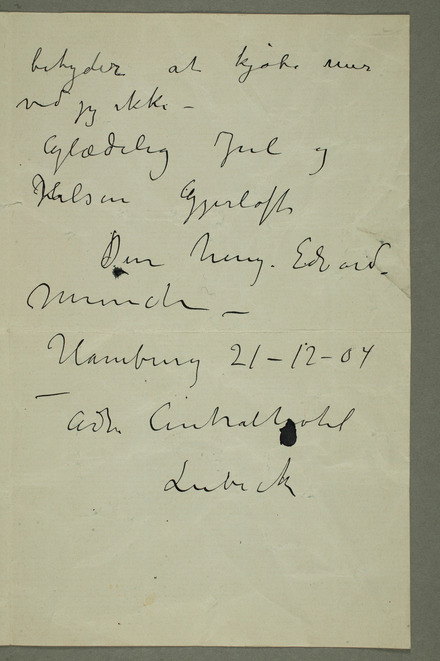 betyder at kjøbe mer
ved jeg ikke –
Glædelig Jul og
Hilsen Gjerløffs
Din heng. Edvard
Munch –
Hamburg 21–12–04
Adr. Centralhotel
Lubeck